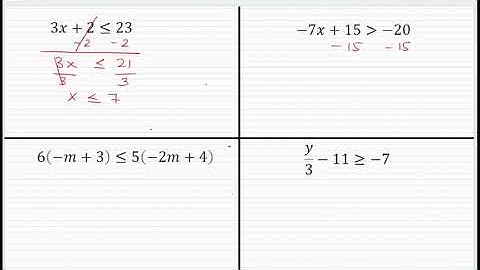 3x + 2 ≤ 23
-2 -2
3x ≤ 21
3 3
x ≤ 7
−7x + 15 > −20
- 15 - 15
6(−m + 3) ≤ 5(−2m + 4)
y/3 − 11 ≥ −7